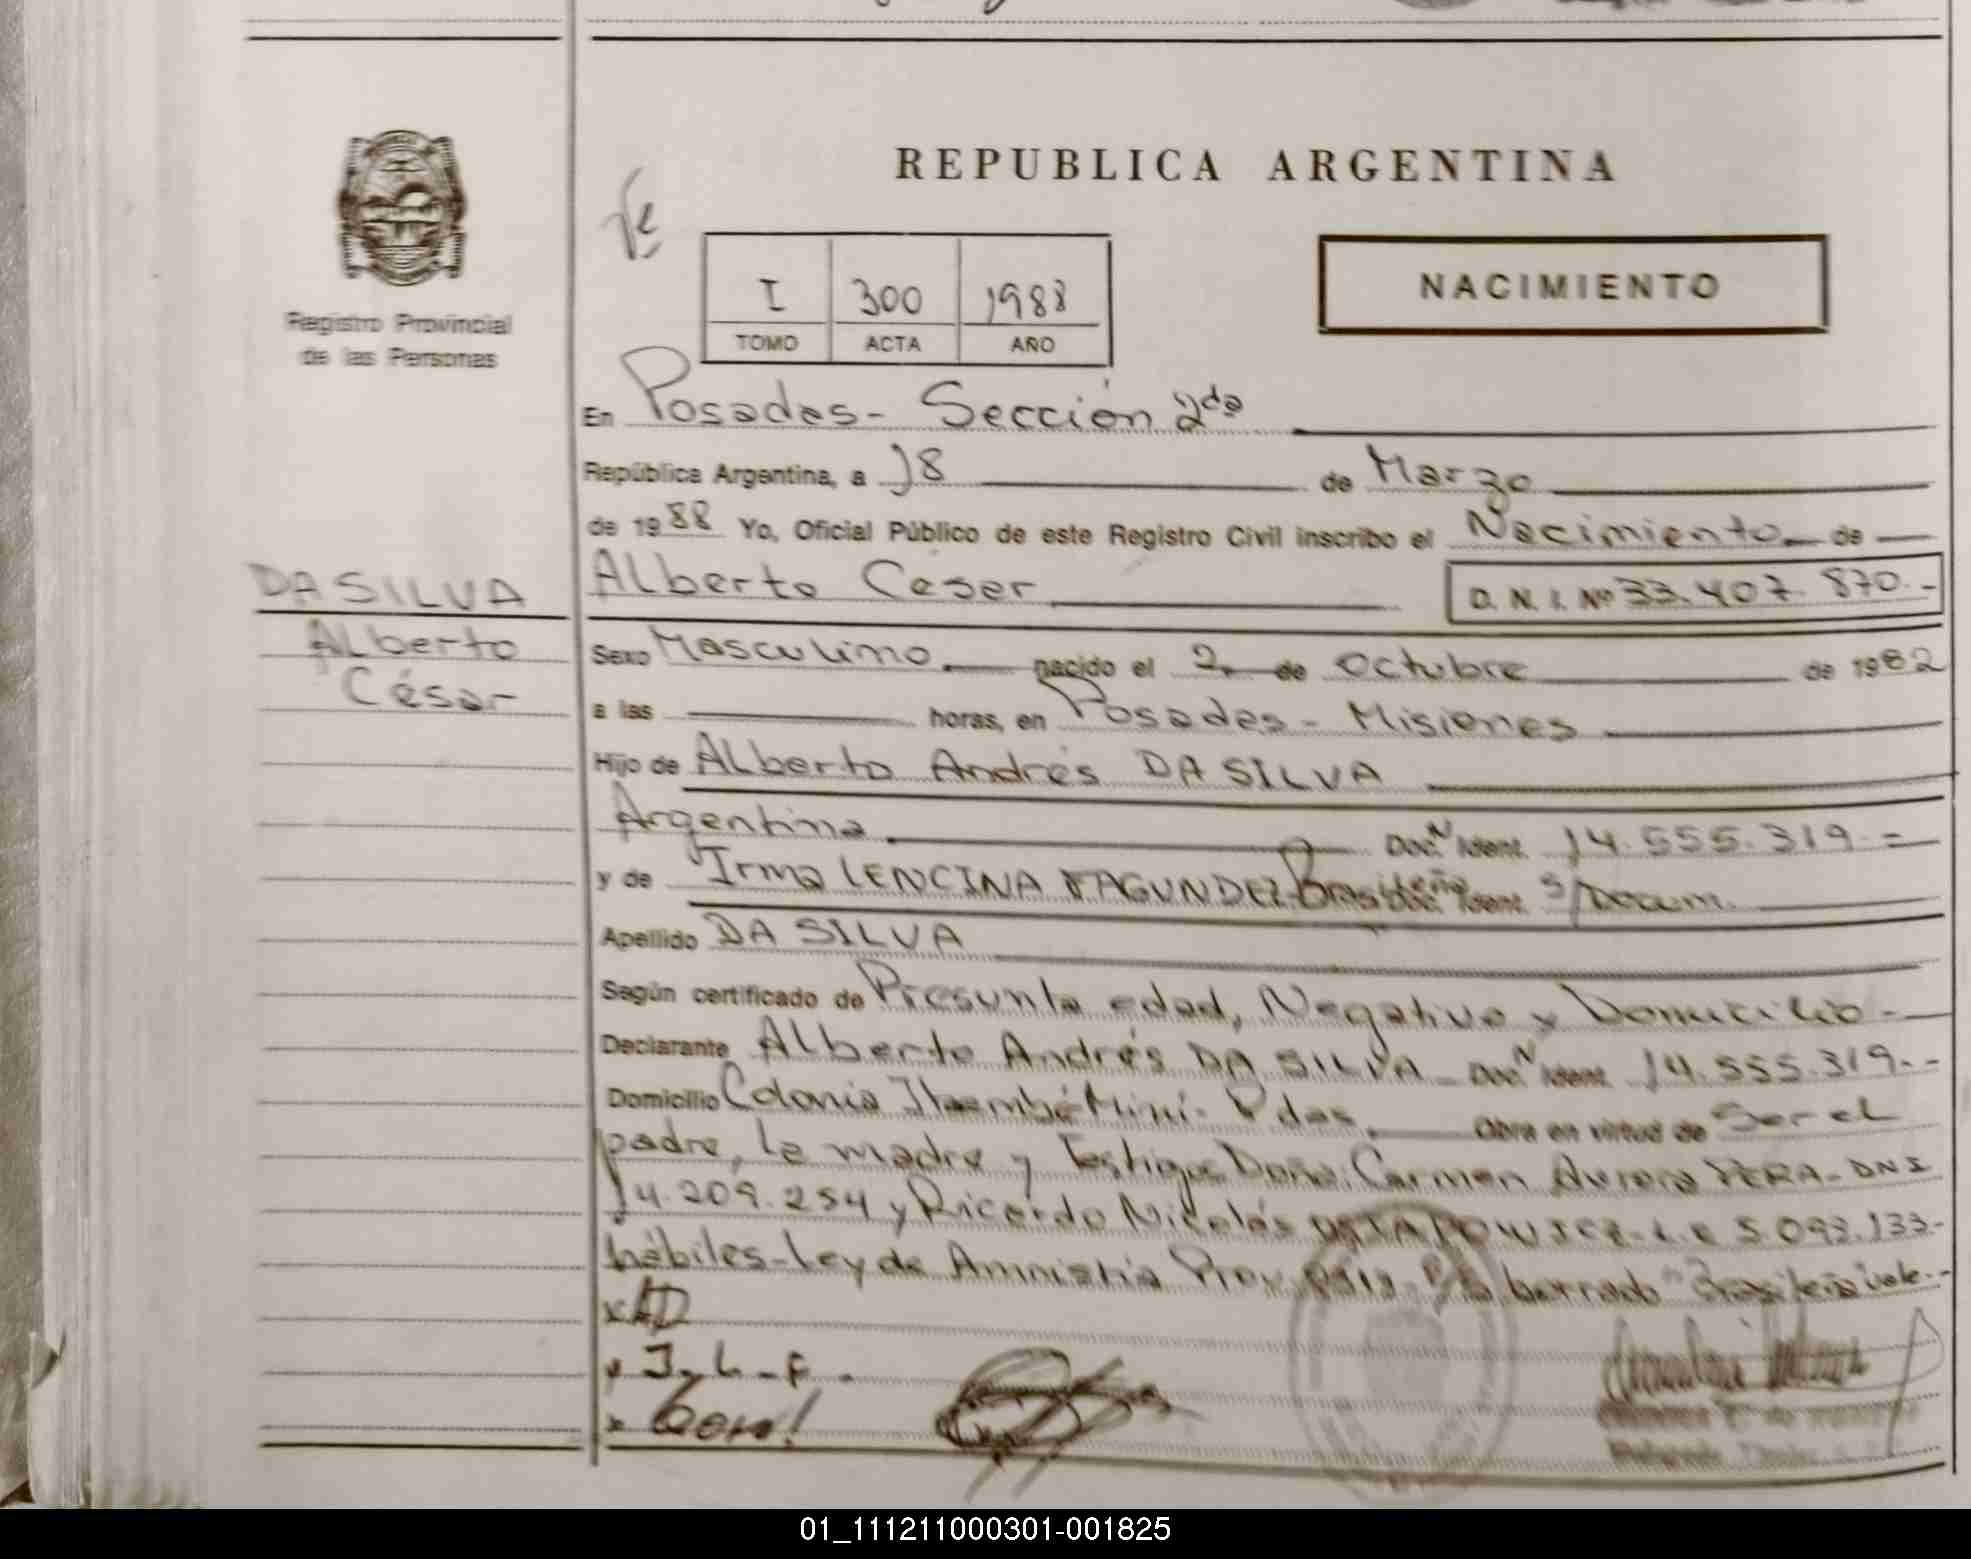 REPUBLICA ARGENTINA
Registro Provincial
de las Personas
I 300 1988
TOMO ACTA AÑO
NACIMIENTO
En Posadas - Sección 2da
República Argentina, a 18 de Marzo
de 1988 Yo, Oficial Público de este Registro Civil inscribo el Nacimiento de
DA SILVA
Alberto
César
Alberto Cesar D. N. I. Nº 33.407.870.-
Sexo Masculino nacido el 2 de Octubre de 1982
a las horas, en Posadas - Misiones
Hijo de Alberto Andrés DA SILVA
Argentina Doc. N Ident. 14.555.319.=
y de Irma LENCINA FAGUNDEZ Brasileña Doc. Ident. S/Docum.
Apellido DA SILVA
Según certificado de Presunta edad, Negativo y Domicilio -
Declarante Alberto Andrés DA SILVA - Doc. N Ident. 14.555.319.--
Domicilio Colonia Itaembé Miní - Pdas. Obra en virtud de Ser el
padre, la madre y Testigos Doña: Carmen Aurora VERA - DNI
14.209.254 y Ricardo Nicolás L.E 5.093.133-
hábiles - Ley de Amnistía Prov. borrado "Brasileña" vale.-
x AD
x I. L. F.
x
01_111211000301-001825